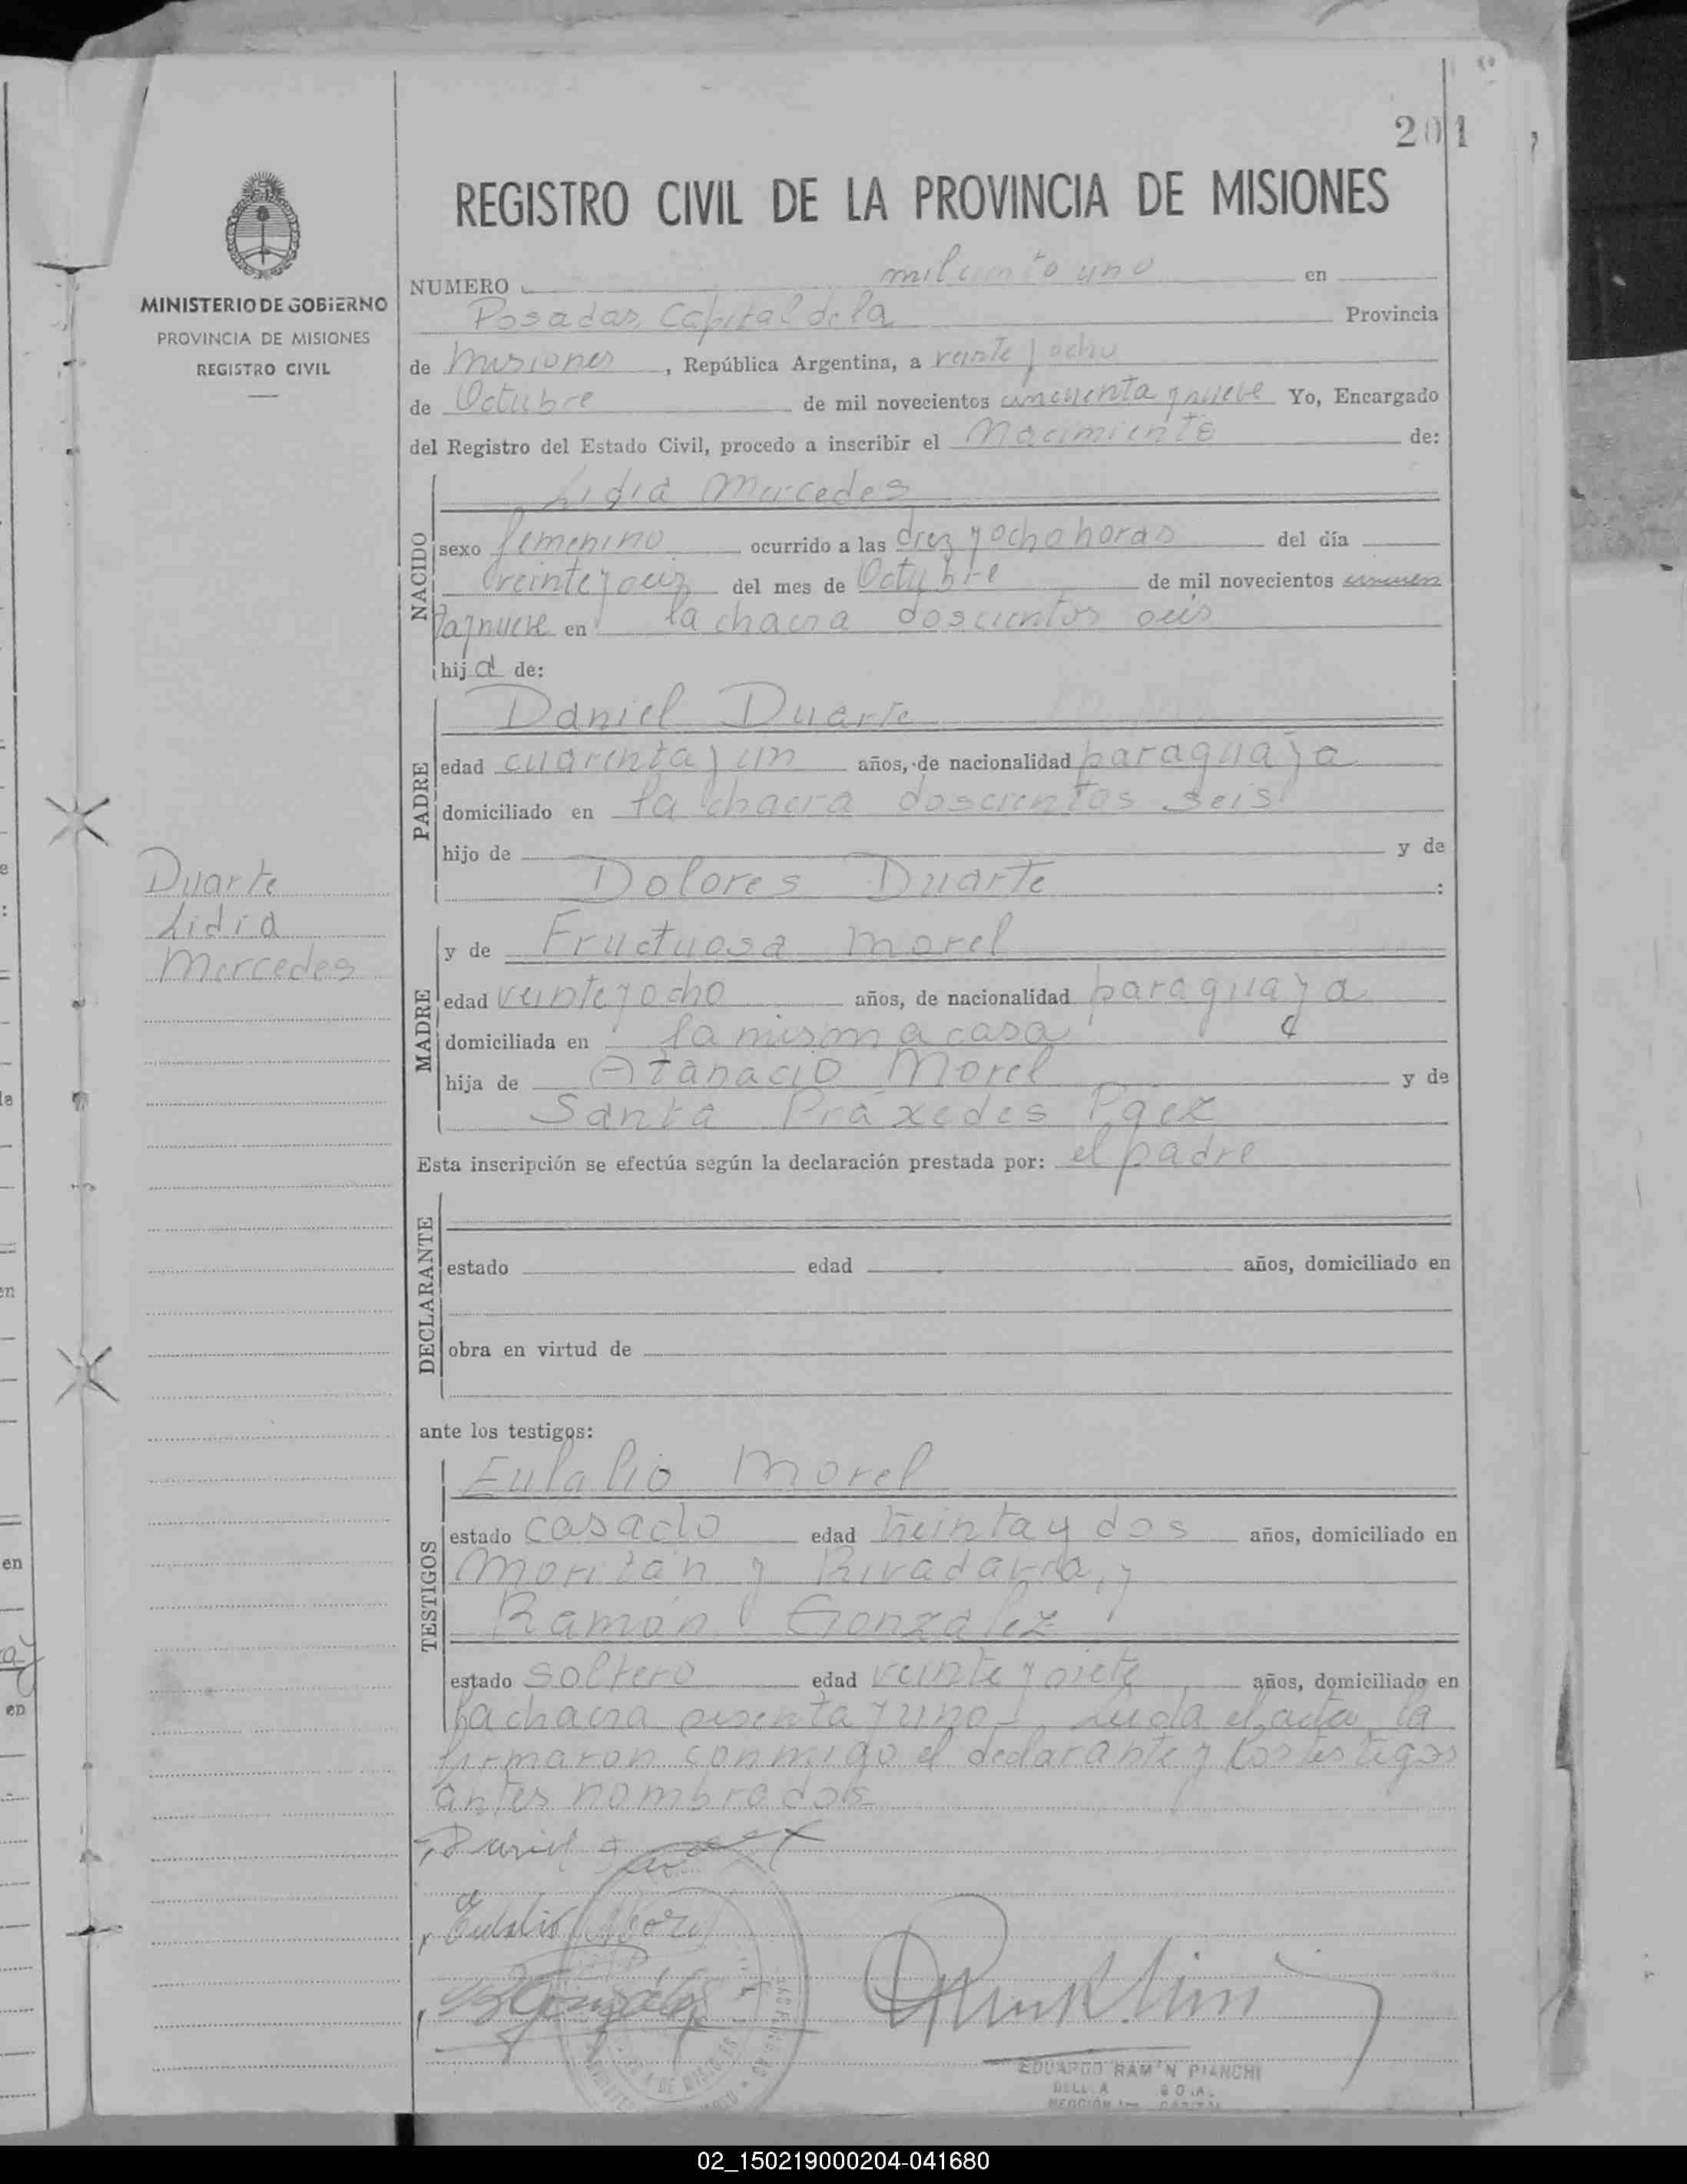 201
REGISTRO CIVIL DE LA PROVINCIA DE MISIONES
MINISTERIO DE GOBIERNO
PROVINCIA DE MISIONES
REGISTRO CIVIL
NUMERO mil ciento uno en
Posadas, Capital de la Provincia
de Misiones, República Argentina, a veinte y ocho
de Octubre de mil novecientos cincuenta y nueve Yo, Encargado
del Registro del Estado Civil, procedo a inscribir el Nacimiento de:
NACIDO
Lidia Mercedes
sexo femenino ocurrido a las diez y ocho horas del día
veinte y seis del mes de Octubre de mil novecientos cincuen
ta y nueve en la chacra doscientos seis
hija de:
PADRE
Daniel Duarte
edad cuarenta y un años, de nacionalidad paraguaya
domiciliado en la chacra doscientos seis
hijo de y de
Dolores Duarte :
Duarte
Lidia
Mercedes
MADRE
y de Fructuosa Morel
edad veinte y ocho años, de nacionalidad paraguaya
domiciliada en la misma casa
hija de Atanacio Morel y de
Santa Práxedes Paez
Esta inscripción se efectúa según la declaración prestada por: el padre
DECLARANTE
estado edad años, domiciliado en
obra en virtud de
ante los testigos:
TESTIGOS
Eulalio Morel
estado casado edad treinta y dos años, domiciliado en
y Rivadavia, y
Ramón González
estado soltero edad veinte y siete años, domiciliado en
la chacra sesenta y uno. Leída el acta, la
firmaron conmigo el declarante y los testigos
antes nombrados
Eulalio Morel
R González
EDUARDO RAMON PIANCHI
02_150219000204-041680